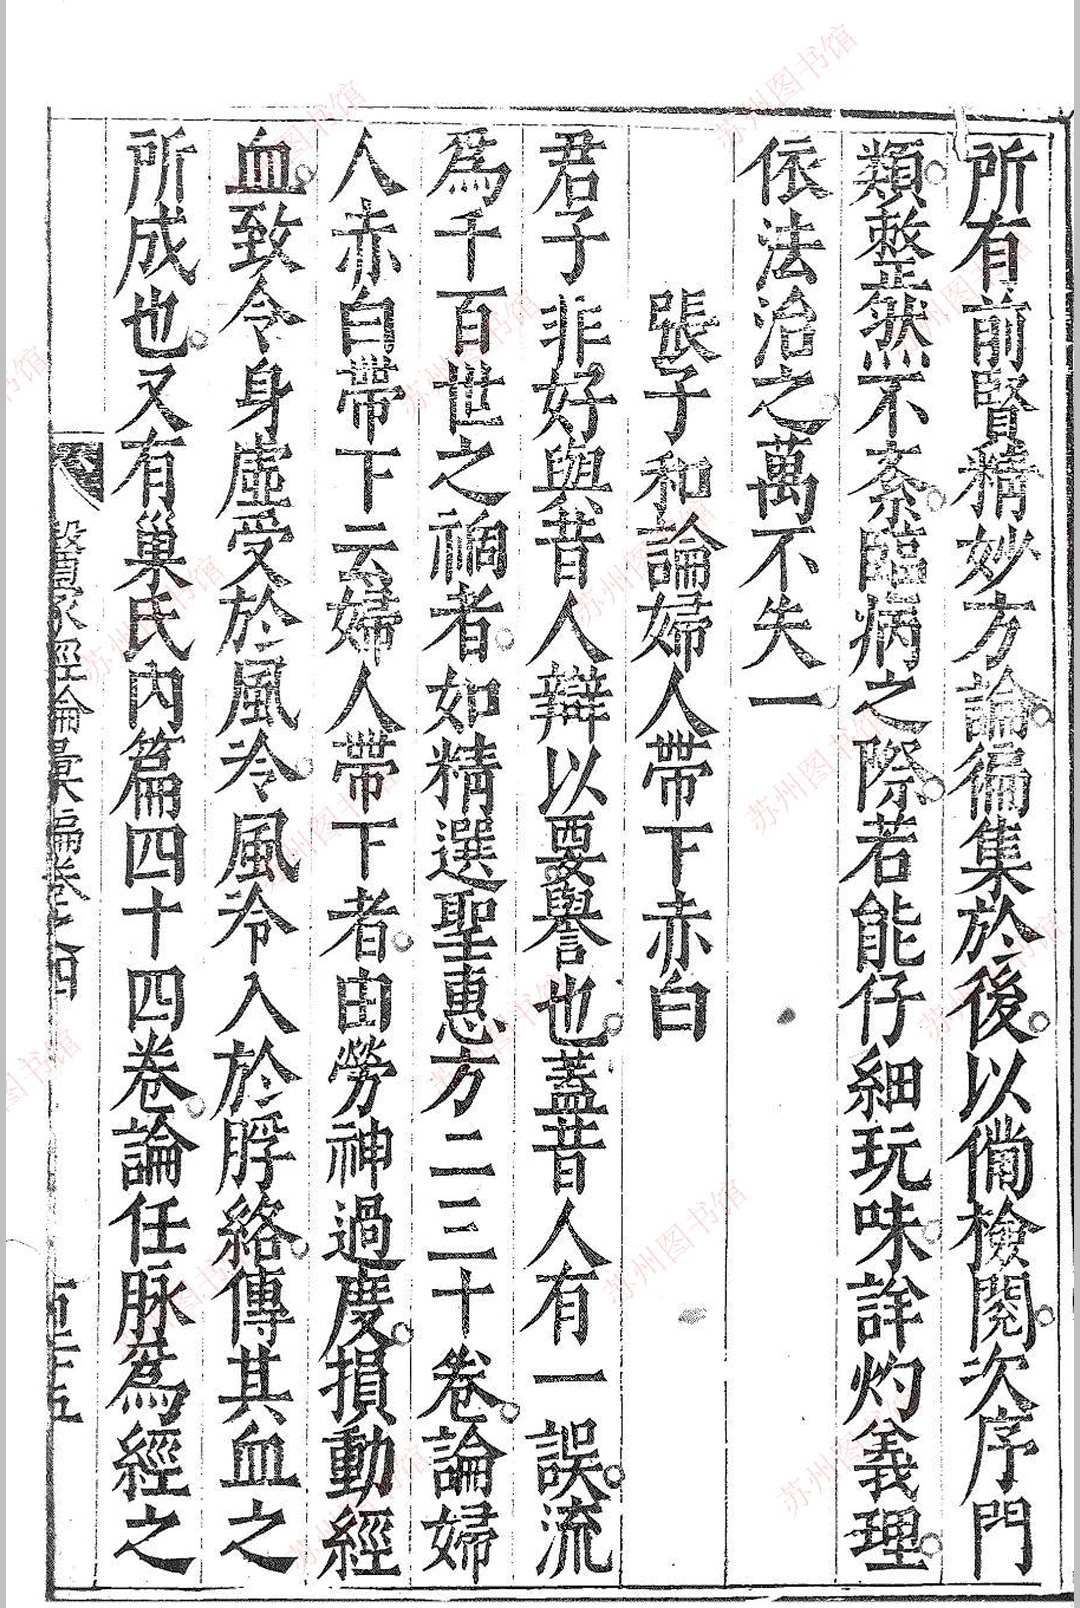 所有前賢精妙方論。徧集於後。以僃檢閱。次序門
類。整然不紊。臨病之際。若能仔細玩味。詳灼義理。
依法治之。萬不失一。
張子和論婦人帶下赤白
君子非好與昔人辯以要譽也。蓋昔人有一誤。流
為千百世之禍者。如精選聖惠方二三十卷。論婦
人赤白帶下云婦人帶下者。由勞神過度。損動經
血。致令身虛受於風冷。風冷入於脬絡。傳其血之
所成也。又有巢氏內篇四十四卷。論任脉為經之
醫家經論彙編卷之四
百二十五
苏州图书馆